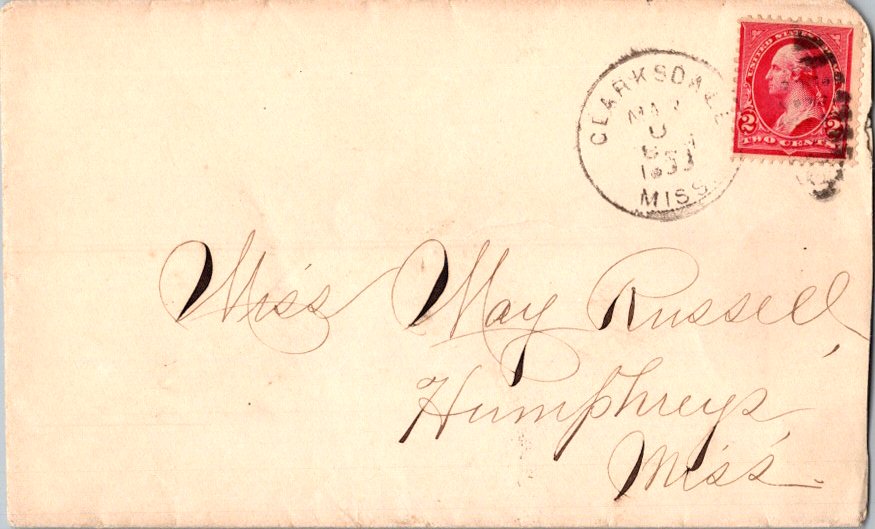 CLARKSDALE
MISS.
UNITED STATES
2 2
TWO CENTS
Miss May Russell,
Humphreys
Miss.